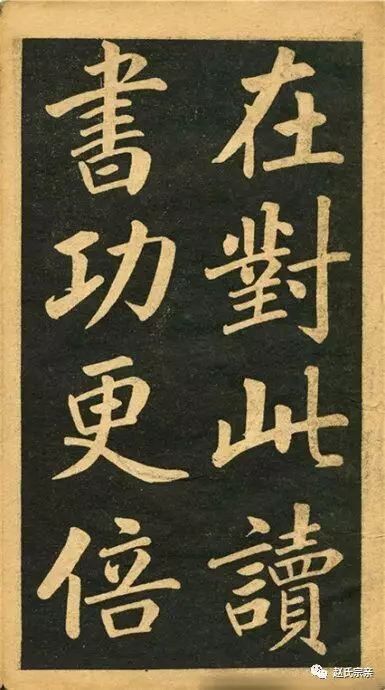 在對此讀
書功更倍
赵氏宗亲